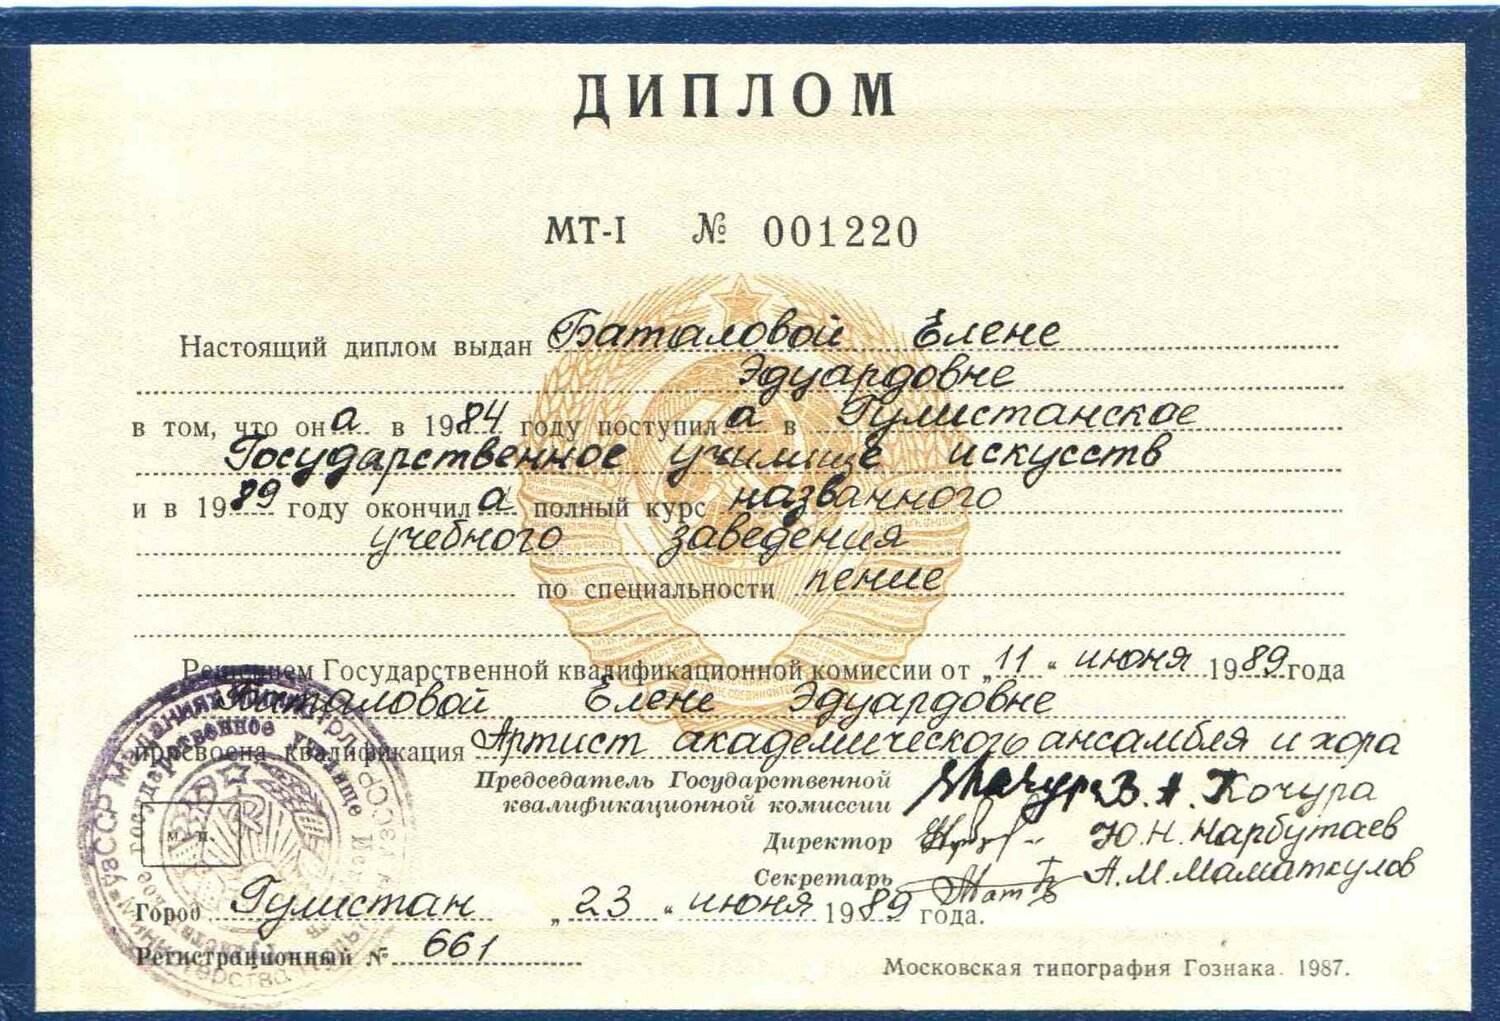 ДИПЛОМ
МТ-I № 001220
Настоящий диплом выдан Баталовой Елене
Эдуардовне
в том, что она в 1984 году поступила в Гулистанское
Государственное училище искусств
и в 1989 году окончила полный курс названного
учебного заведения
по специальности пение
Решением Государственной квалификационной комиссии от „11“ июня 1989 года
Баталовой Елене Эдуардовне
присвоена квалификация Артист академического ансамбля и хора
Председатель Государственной
квалификационной комиссии В. А. Кочура
Директор Ю.Н. Нарбутаев
Секретарь А.М. Маматкулов
М. П.
Город Гулистан „23“ июня 1989 года.
Регистрационный № 661
Московская типография Гознака. 1987.